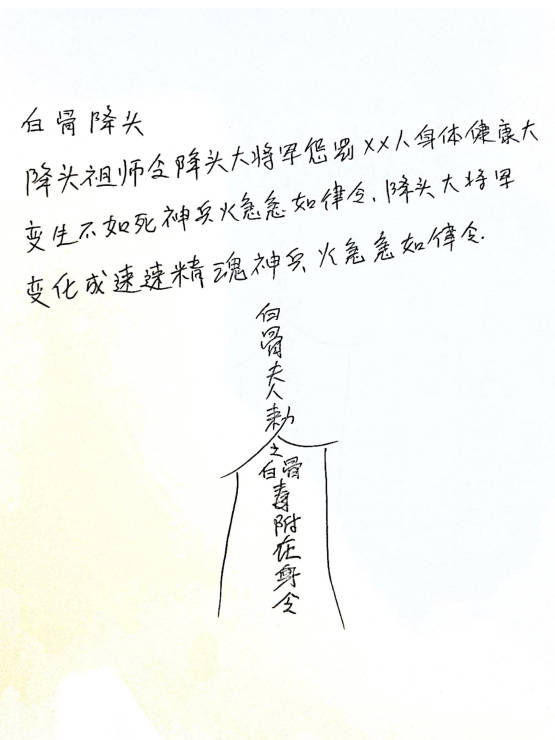 白骨降头
降头祖师令降头大将军惩罚XX人身体健康大
变生不如死神兵火急急如律令.降头大将军
变化成速速精魂神兵火急急如律令.
白骨夫人勅
之
白骨
毒附在身令